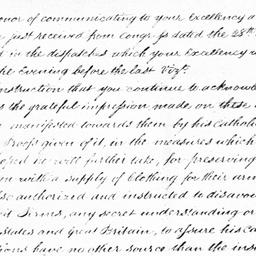 onor of communicating to your Excellency a
just received from Congress dated the 28th
d in the despatches which your Excellency
he Evening before the last Vizt.
nstruction that you continue to acknowle
s the grateful impression made on these
manifested towards them by his Catholic
proofs given of it, in the measures which
oposed he will further take, for preserving
m with a supply of Clothing for their arm
lso authorized and instructed to disavow
it Terms, any secret understanding or
States and Great Britain, to assure his Ca
tions have no other source than the ins